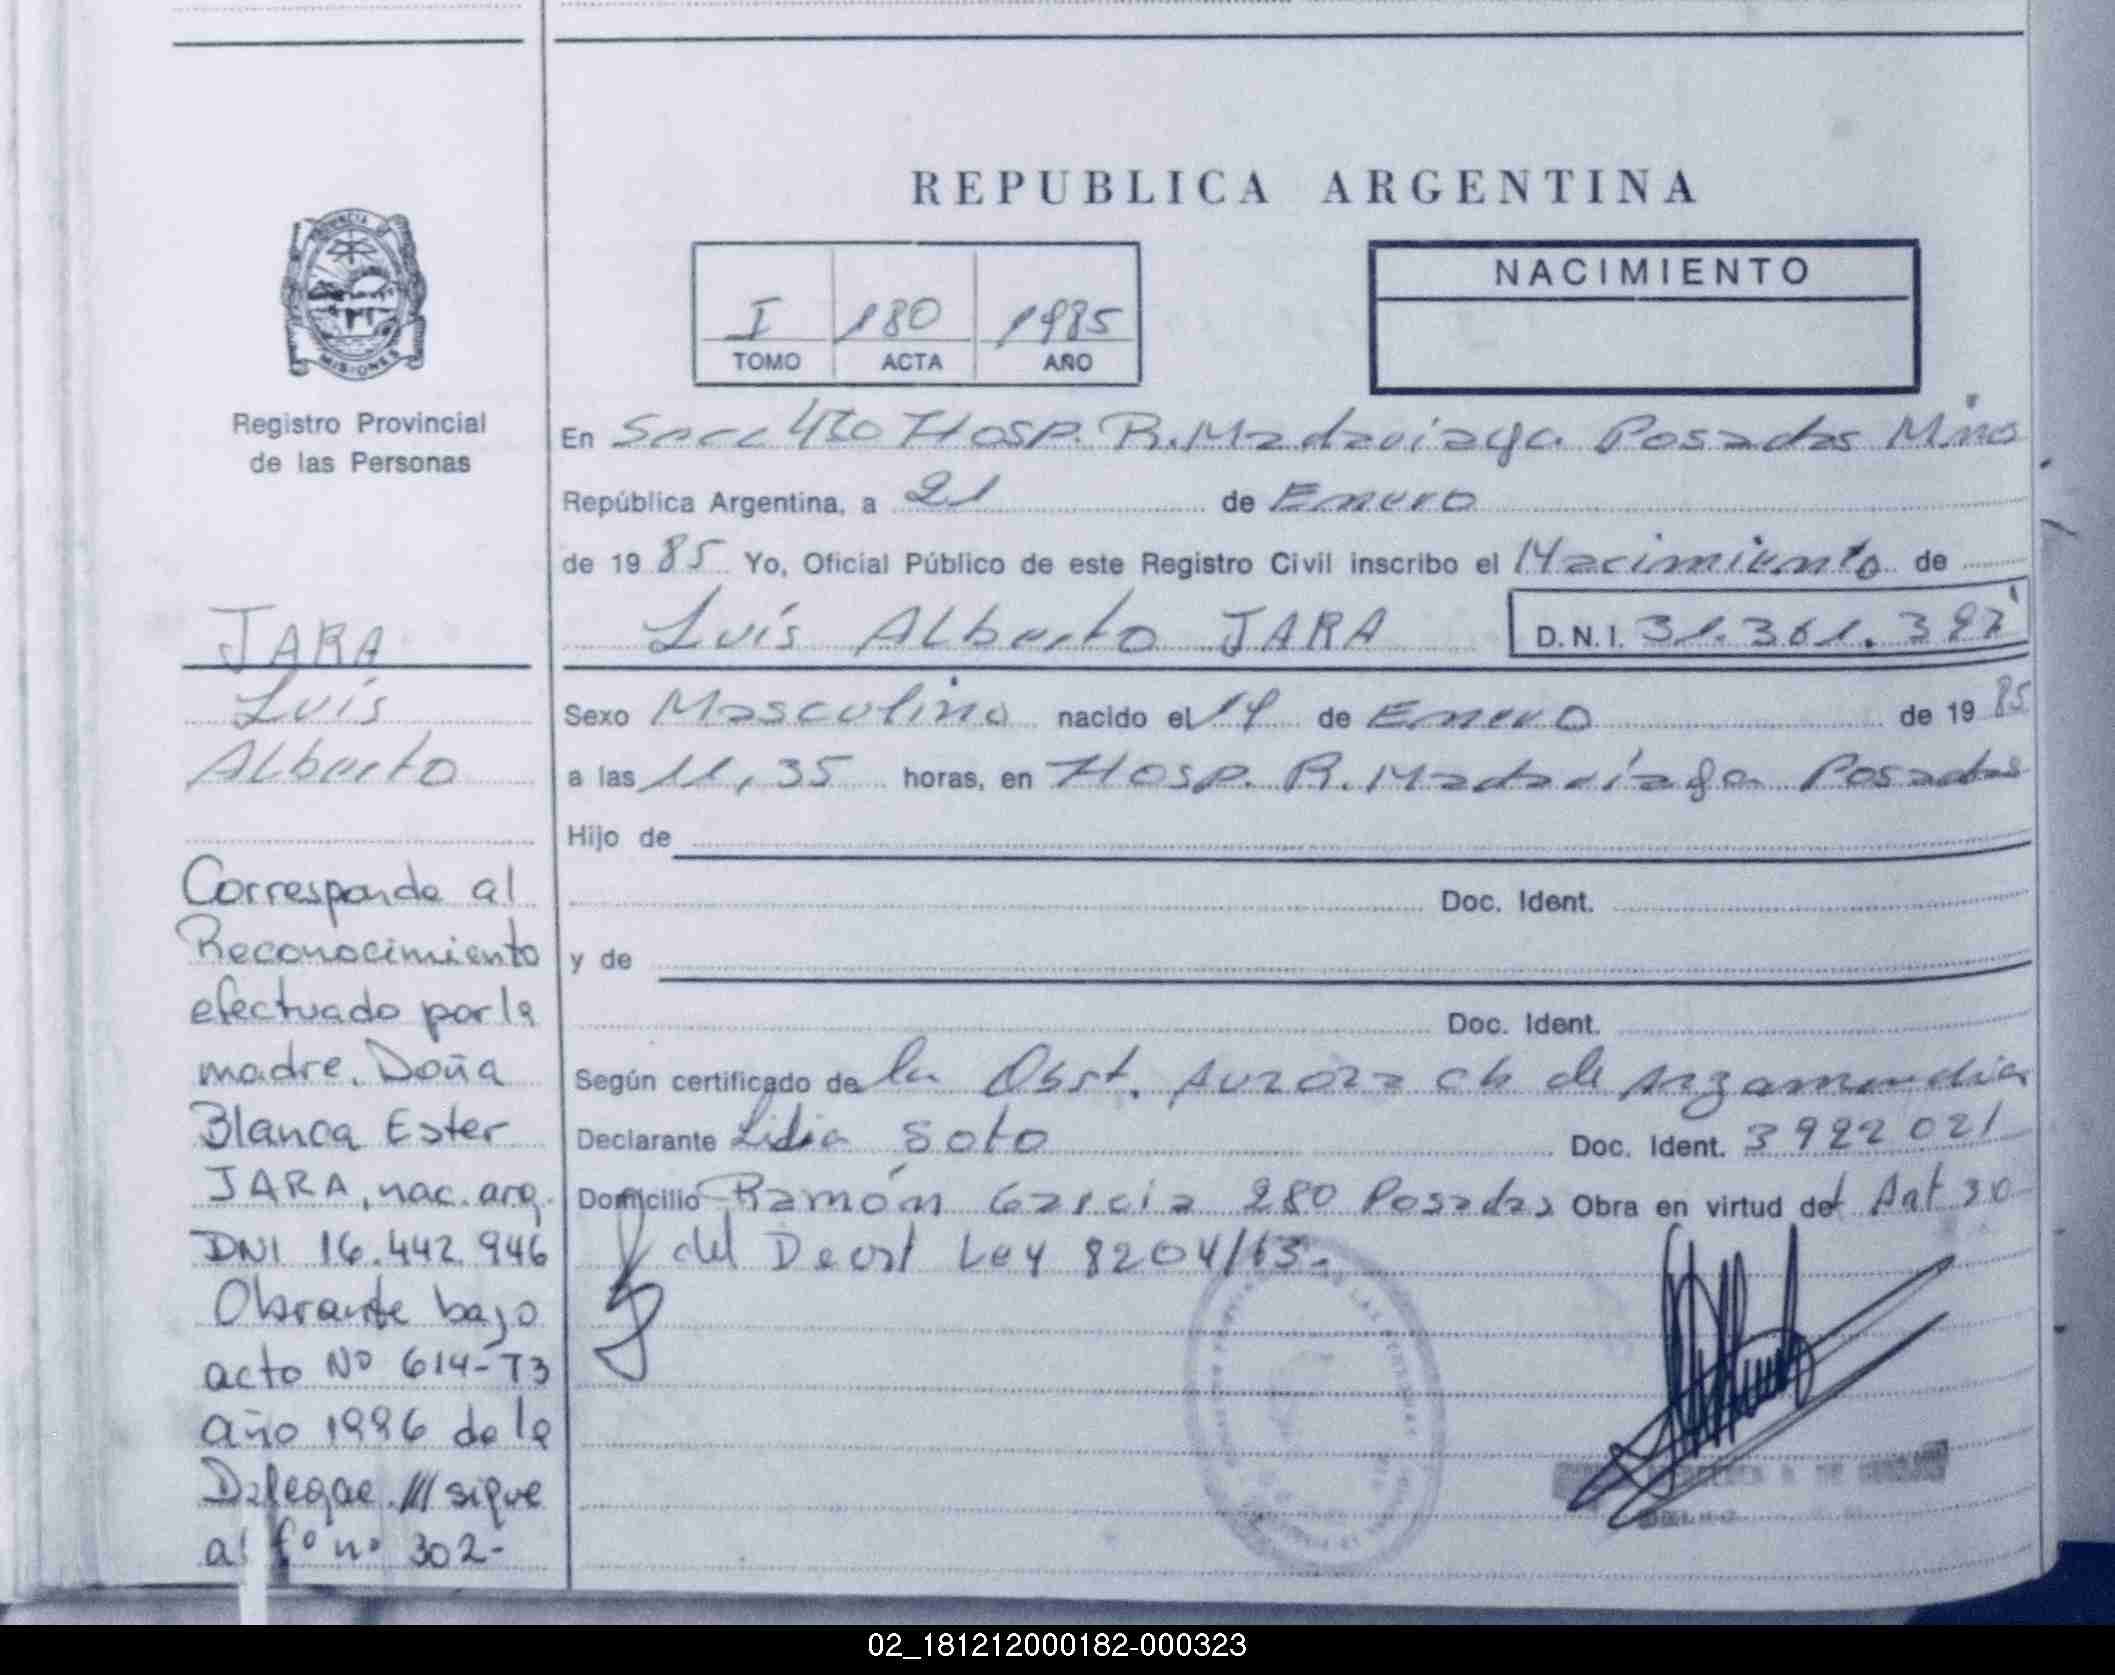 REPUBLICA ARGENTINA
PROVINCIA DE
MISIONES
Registro Provincial
de las Personas
I 180 1985
TOMO ACTA AÑO
NACIMIENTO
En Secc 4ta Hosp. R. Madariaga Posadas Mnes
República Argentina, a 21 de Enero
de 1985 Yo, Oficial Público de este Registro Civil inscribo el Nacimiento de
Luis Alberto JARA D.N.I. 31.361.397
Sexo Masculino nacido el 14 de Enero de 1985
a las 11,35 horas, en Hosp. R. Madariaga Posadas
Hijo de
Doc. Ident.
y de
Doc. Ident.
Según certificado de la Obst. Aurora Ch de Argamendia
Declarante Lidia Soto Doc. Ident. 3922021
Domicilio Ramón Garcia 280 Posadas Obra en virtud del Art 30
del Decret Ley 8204/63.-
JARA
Luis
Alberto
Corresponde al
Reconocimiento
efectuado por la
madre. Doña
Blanca Ester
JARA, nac. arg.
DNI 16.442.946
Obrante bajo
acto Nº 614-T3
año 1996 de la
Delegac. /// sigue
al fº nº 302-
02_181212000182-000323